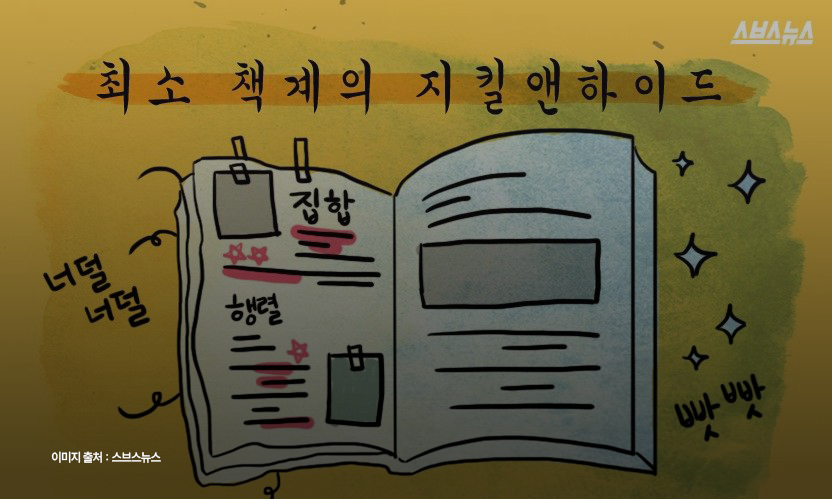 스브스뉴스
최소 책계의 지킬앤하이드
집합
행렬
너덜
너덜
빳빳
이미지 출처 : 스브스뉴스